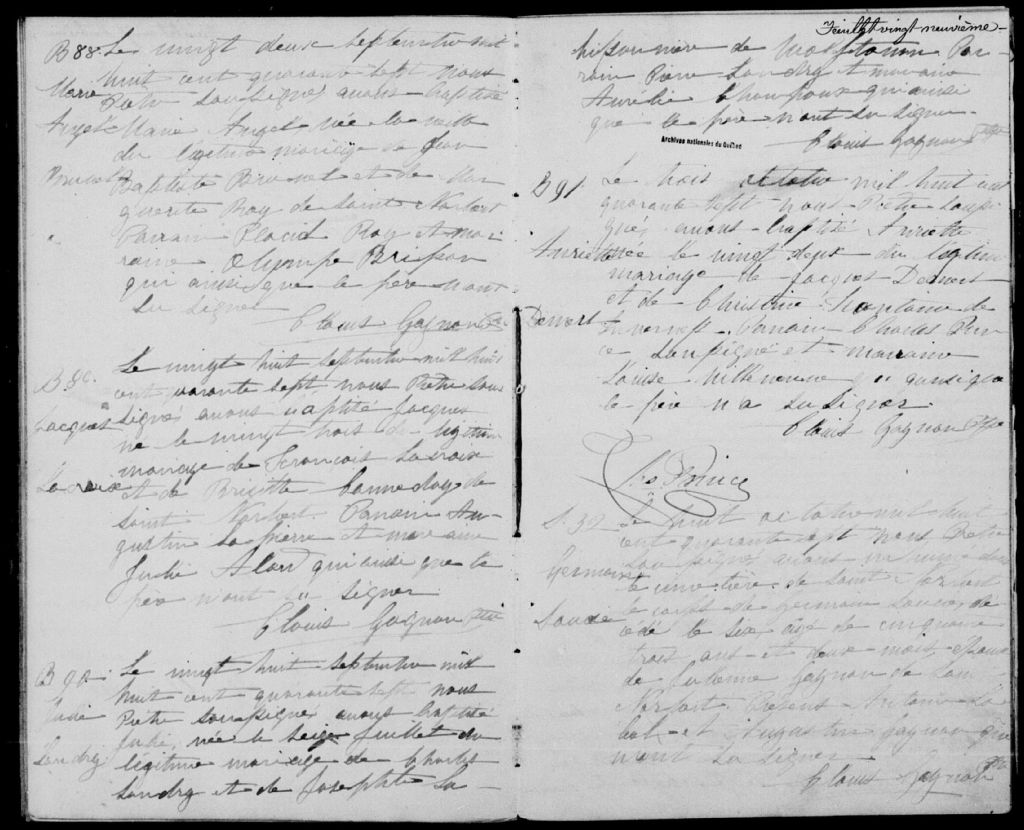 B 88.
Marie
Angel
Brunet
Le vingt deux septembre mil
huit cent quarante sept nous
Prêtre soussigné avons baptisé
Marie Angel née la veille
du légitime mariage de Jean
Baptiste Brunet et de Mar
guerite Roy de Saint Norbert
Parrain Placid Roy et mar
raine Olympe Brisson
qui ainsi que le père n'ont
su signer
Clovis Gagnon Ptre
B 89.
Jacques
Lacroix
Le vingt huit septembre mil huit
cent quarante sept nous Prêtre sous
signé avons baptisé Jacques
né le vingt trois de légitime
mariage de François Lacroix
et de Brigitte de
Saint Norbert. Parrain Au
gustin Lapierre et marraine
Julie Alard qui ainsi que le
père n'ont su signer
Clovis Gagnon Ptre
B 90.
Julie
Landry
Le vingt huit septembre mil
huit cent quarante sept nous
Prêtre soussigné avons baptisé
Julie, née le seize juillet du
légitime mariage de Charles
Landry et de Josephte La
Feuillet vingt-neuvième
de Par
rain Pierre Landry et marraine
Aurélie qui ainsi
que le père n'ont su signer.
Clovis Gagnon Ptre
Archives nationales du Québec
B 91
Auriette
Demers
Le trois octobre mil huit cent
quarante sept nous Prêtre sous
signé avons baptisé Auriette
née le vingt deux du légitime
mariage de Jacques Demers
et de Christine de
Inverness. Parrain Charles Prin
ce soussigné et marraine
Louise qui ainsi que
le père n'a su signer.
Clovis Gagnon Ptre
Chs Prince
S. 32
Germain
Saucié
Le huit octobre mil huit
cent quarante sept nous Prêtre
soussigné avons inhumé dans
le cimetière de Saint Norbert
le corps de Germain Saucié, dé
cédé le six agé de cinquante
trois ans et deux mois, Epoux
de Gagnon de Saint
Norbert. Présens Antoine La
bel et Augustin Gagnon qui
n'ont su signer
Clovis Gagnon Ptre